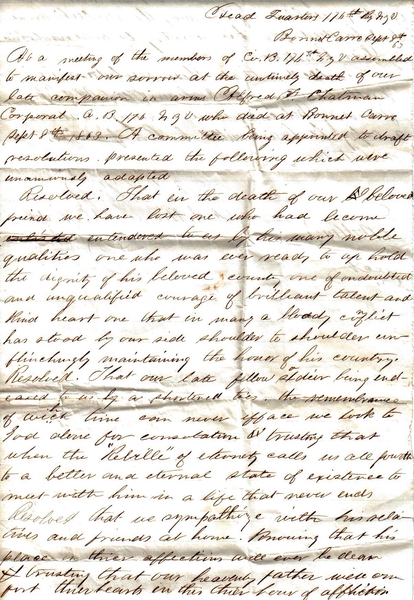 Head Quarters 176th Rg N.Y.V
Bonnet Carre Sept 8th 63
At a meeting of the members of Co. B. 176th N.Y.V assembled
to manifest our sorrow at the untimely death of our
late companion in arms Alfred F. Chatman
Corporal Co. B. 176 N.Y.V who died at Bonnet Carre
Sept 8th 1863. A committee being appointed to draft
resolutions. presented the following which were
unamiously adapted
Resolved. That in the death of our beloved
friend we have lost one who had become
entendered to us by his many noble
qualities one who was ever ready to up hold
the dignity of his beloved country one of undoubted
and unqualified courage of brilliant talent and
kind heart one that in many a bloody conflict
has stood by our side shoulder to shoulder un-
flinchingly maintaining the honor of his country.
Resolved. That our late fellow soldier being end-
eased to us by a shortened ties. the remembrance
of which time can never efface we look to
God alone for consolation & trusting that
when the "Rebille" of eternity calls us all fourth
to a better and eternal state of existence to
meet with him in a life that never ends
Resolved that we sympathize with his rela-
tives and friends at home. Knowing that his
place in their affections will ever be dear
& trusting that our heavenly father will com-
port their hearts in this their hour of affliction